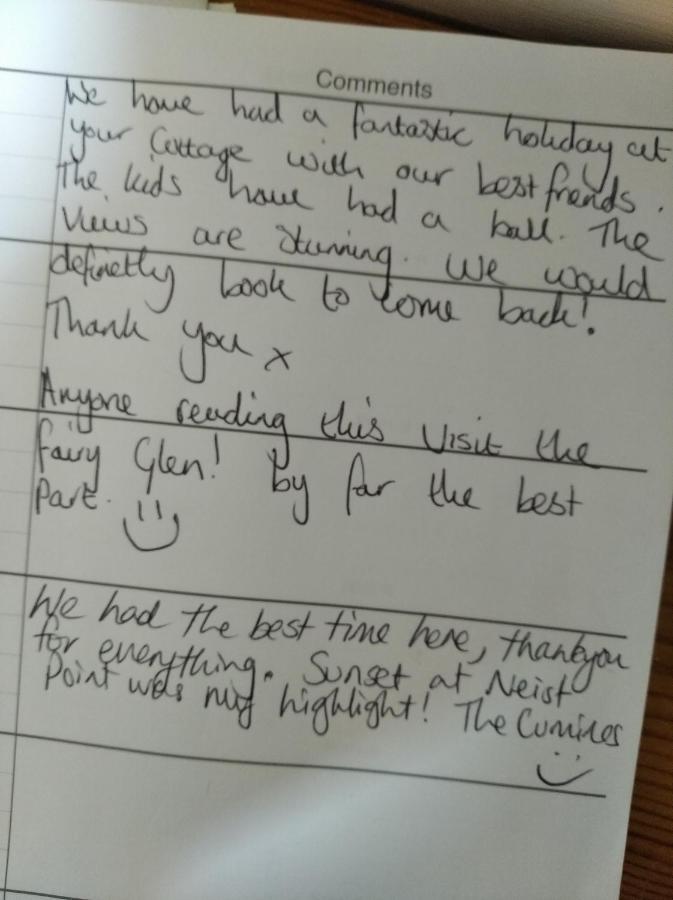 Comments
We have had a fantastic holiday at
your Cottage with our best friends.
The kids have had a ball. The
Views are stunning. We would
definetly book to come back!.
Thank you x
Anyone reading this Visit the
Fairy Glen! By far the best
Part.
We had the best time here, thankyou
for everything. Sunset at Neist
Point was my highlight! The